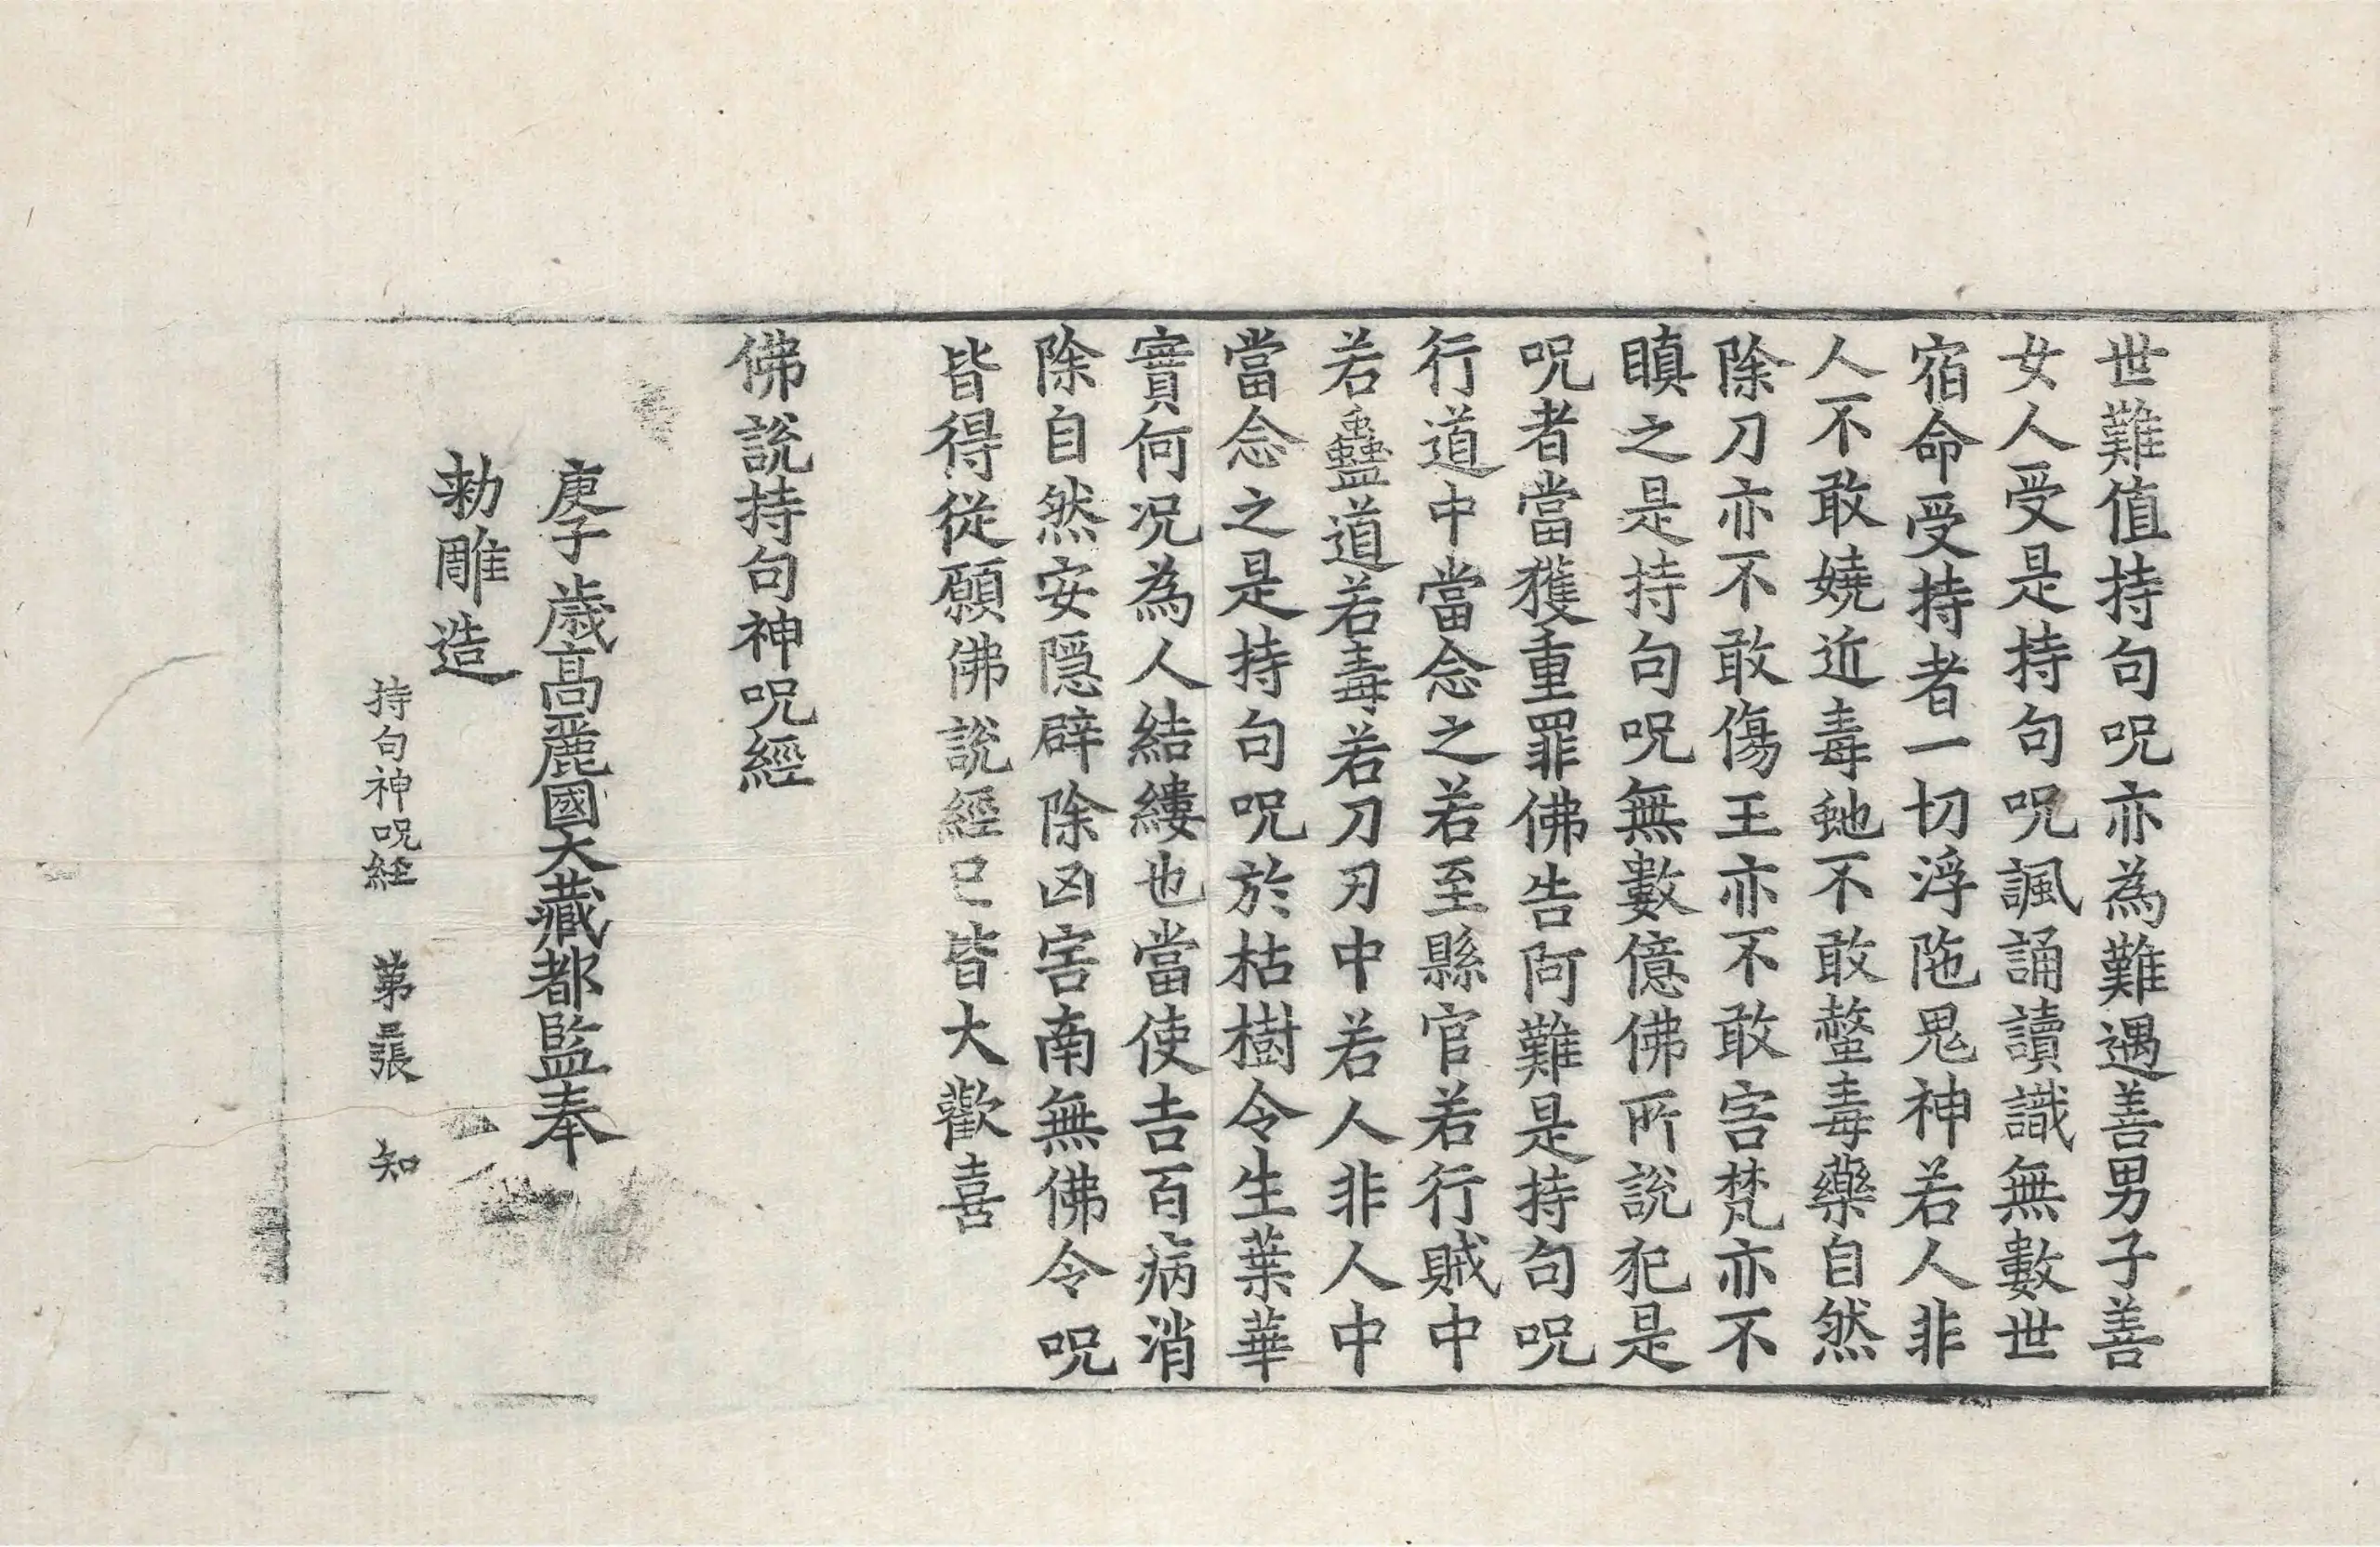 世難值持句呪亦為難遇善男子善
女人受是持句呪諷誦讀識無數世
宿命受持者一切浮陁鬼神若人非
人不敢嬈近毒虵不敢螫毒藥自然
除刀亦不敢傷王亦不敢害梵亦不
瞋之是持句呪無數億佛所說犯是
呪者當獲重罪佛告阿難是持句呪
行道中當念之若至縣官若行賊中
若蠱道若毒若刀刃中若人非人中
當念之是持句呪於枯樹令生葉華
實何況為人結縷也當使吉百病消
除自然安隱辟除凶害南無佛令呪
皆得從願佛說經已皆大歡喜
佛說持句神呪經
庚子歲高麗國大藏都監奉
勑雕造
持句神呪経 苐三張 知